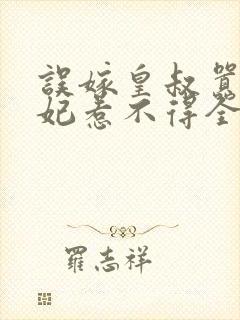 誤嫁皇叔
妃惹不得全
羅志祥